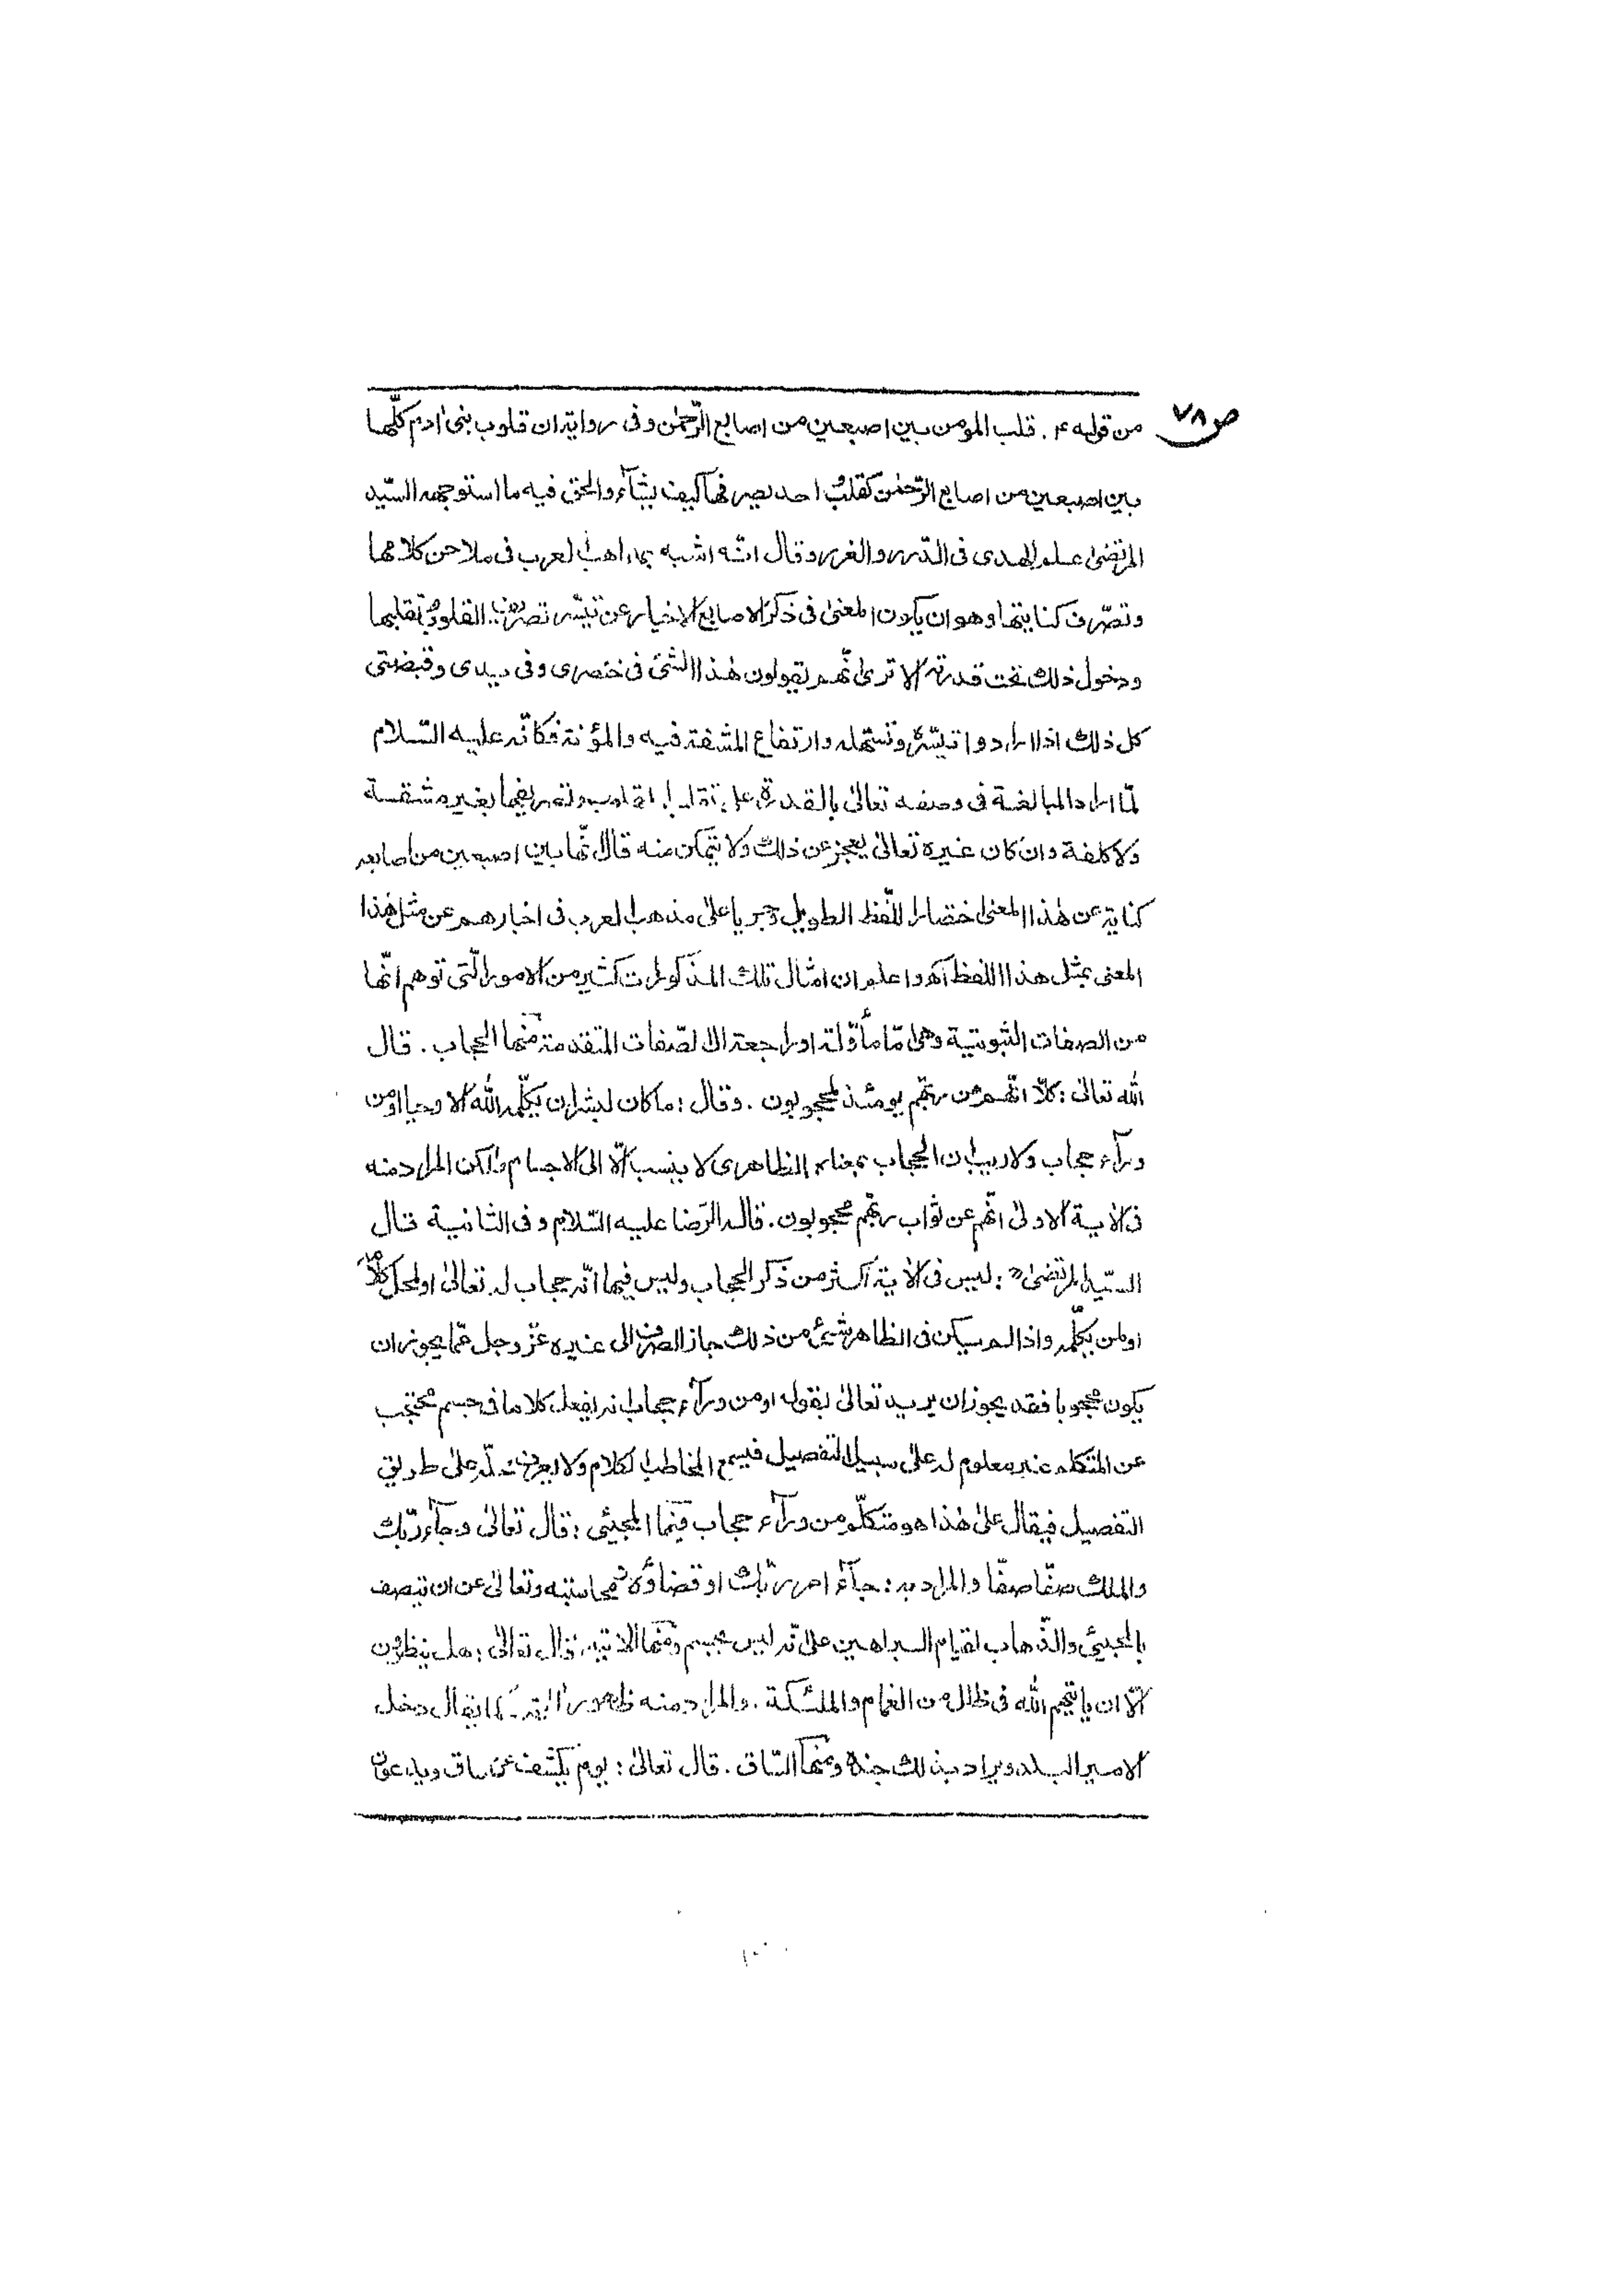 ص ٧٨
من قوله ع . قلب المؤمن بين اصبعين من اصابع الرّحمٰن وفى رواية ان قلوب بنى ادم كلّها
بين اصبعين من اصابع الرّحمٰن كقلب احد يصرفها كيف يشآء والحق فيه ما استوجهه السّيد
المرتضىٰ علم الهدى فى الدّرر والغرر وقال انّه اشبه بمذاهب العرب فى ملاحن كلامها
وتصرّف كناياتها وهو ان يكون المعنىٰ فى ذكر الاصابع الاخبار عن تيسّر تصريف القلوب وتقلبها
ودخول ذلك تحت قدرته الا ترىٰ انّهم يقولون هٰذا الشئ فى خنصرى وفى يدى وقبضتى
كل ذلك اذا ارادوا تيسّره وتسهله وارتفاع المشقة فيه والمؤنة فكانّه عليه السّلام
لمّا اراد المبالغة فى وصفه تعالىٰ بالقدرة على تقليب القلوب وتصريفها بغير مشقة
ولا كلفة وان كان غيره تعالىٰ يعجز عن ذلك ولا يتمكن منه قال انّها بين اصبعين من اصابعه
كناية عن هٰذا المعنىٰ اختصارا للّفظ الطويل وجريا علىٰ مذهب العرب فى اخبارهم عن مثل هٰذا
المعنى بمثل هذا اللفظ آه واعلم ان امثال تلك المذكورات كثير من الامور الّتى توهم انّها
من الصفات الثبوتية وهى امّا مأوّلة او راجعة الى الصّفات المتقدمة منها الحجاب . قال
الله تعالىٰ : كلّا انّهم عن ربّهم يومئذ لمحجوبون . وقال : ما كان لبشر ان يكلّمه الله الا وحيا او من
ورآء حجاب ولا ريب ان الحجاب بمعناه الظاهرى لا ينسب الّا الى الاجسام ولكن المراد منه
فى الآية الاولىٰ انّهم عن ثواب ربّهم محجوبون . قاله الرّضا عليه السّلام وفى الثانية قال
السّيد المرتضىٰ ره : ليس فى الآية اكثر من ذكر الحجاب وليس فيها انّه حجاب له تعالىٰ او لمحل كلامه
او لمن يكلّمه واذا لم يكن فى الظاهر شئ من ذلك جاز الصرف الى غيره عزّ وجل ممّا يجوز ان
يكون محجوبا فقد يجوز ان يريد تعالىٰ بقوله او من ورآء حجاب انه يفعل كلاما فى جسم محتجب
عن المتكلم غير معلوم له علىٰ سبيل التفصيل فيسمع المخاطب الكلام ولا يعرف محلّه علىٰ طريق
التفصيل فيقال علىٰ هٰذا هو متكلّم من ورآء حجاب ومنها المجيئى : قال تعالىٰ وجآء ربّك
والملك صفّا صفّا والمراد به : جآء امر ربّك او قضاؤه ومحاسبته وتعالىٰ عن ان يتصف
بالمجيئ والذّهاب لقيام البراهين علىٰ انّه ليس بجسم ومنها الاتيان قال تعالىٰ : هل ينظرون
الّا ان ياتيهم الله فى ظلل من الغمام والملئكة . والمراد منه ظهور كما يقال دخل
الامير البلد ويراد بذلك جنده ومنها السّاق . قال تعالىٰ : يوم يكشف عن ساق ويدعون